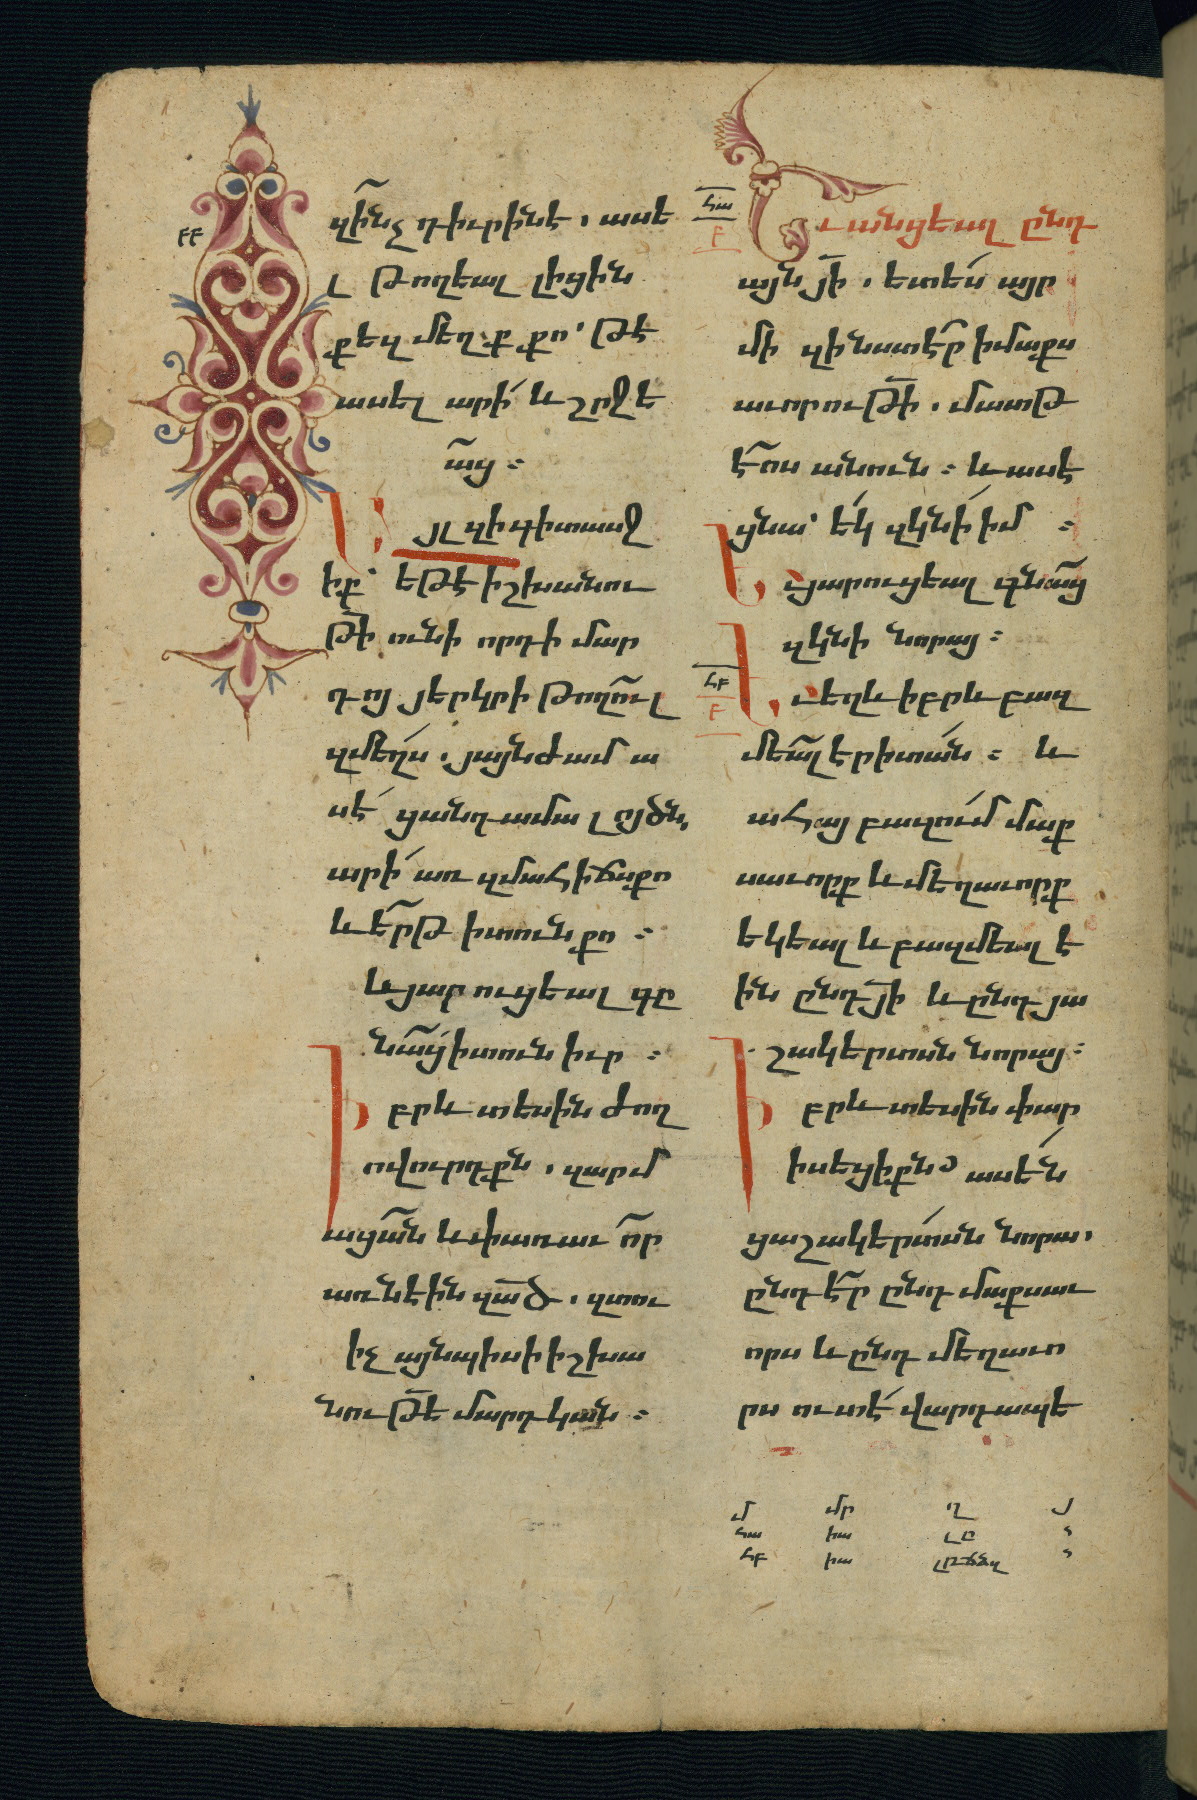 բբ
զի՞նչ դիւրին է, ասե
լ թողեալ լիցին
քեզ մեղք քո՝ թէ
ասել արի՛ և շրջե
ա՜ց ։
Այլ զի գիտասջ
իք՝ եթէ իշխանու
թի ունի որդի մար
դոյ յերկրի թողուլ
զմեղս, յայնժամ ա
սէ՛ ցանդամալոյծն,
արի՛ առ զմահիճս քո
և երթ ի տուն քո ։
և յարուցեալ գը
նաց ի տուն իւր ։
Իբրև տեսին ժող
ովուրդքն, զարմ
ացան և փառաւոր
առնէին զած, զտու
իչ այնպիսի իշխա
նութե մարդկան ։
հա
բ
Եւ անցեալ ընդ
այն յի, ետես այր
մի զի նստէր ի մաքս
աւորութի, մատթ
էոս անուն ։ և ասէ
ցնա՝ ե՛կ զկնի իմ ։
Եւ յարուցեալ գնաց
զկնի նորայ ։
հբ
բ
Եւ եղև իբրև բազ
մեալ էր ի տան ։ և
ահայ բազում մաք
սաւորք և մեղաւորք
եկեալ և բազմեալ է
ին ընդ յի և ընդ յա
շակերտսն նորայ ։
Իբրև տեսին փար
իսեցիքն ասեն
ցաշակերտսն նորա,
ընդէր ընդ մաքսաւ
որս և ընդ մեղաւո
րս ուտէ վարդապե
մ մր ղ յ
հա իա լը
հբ իա